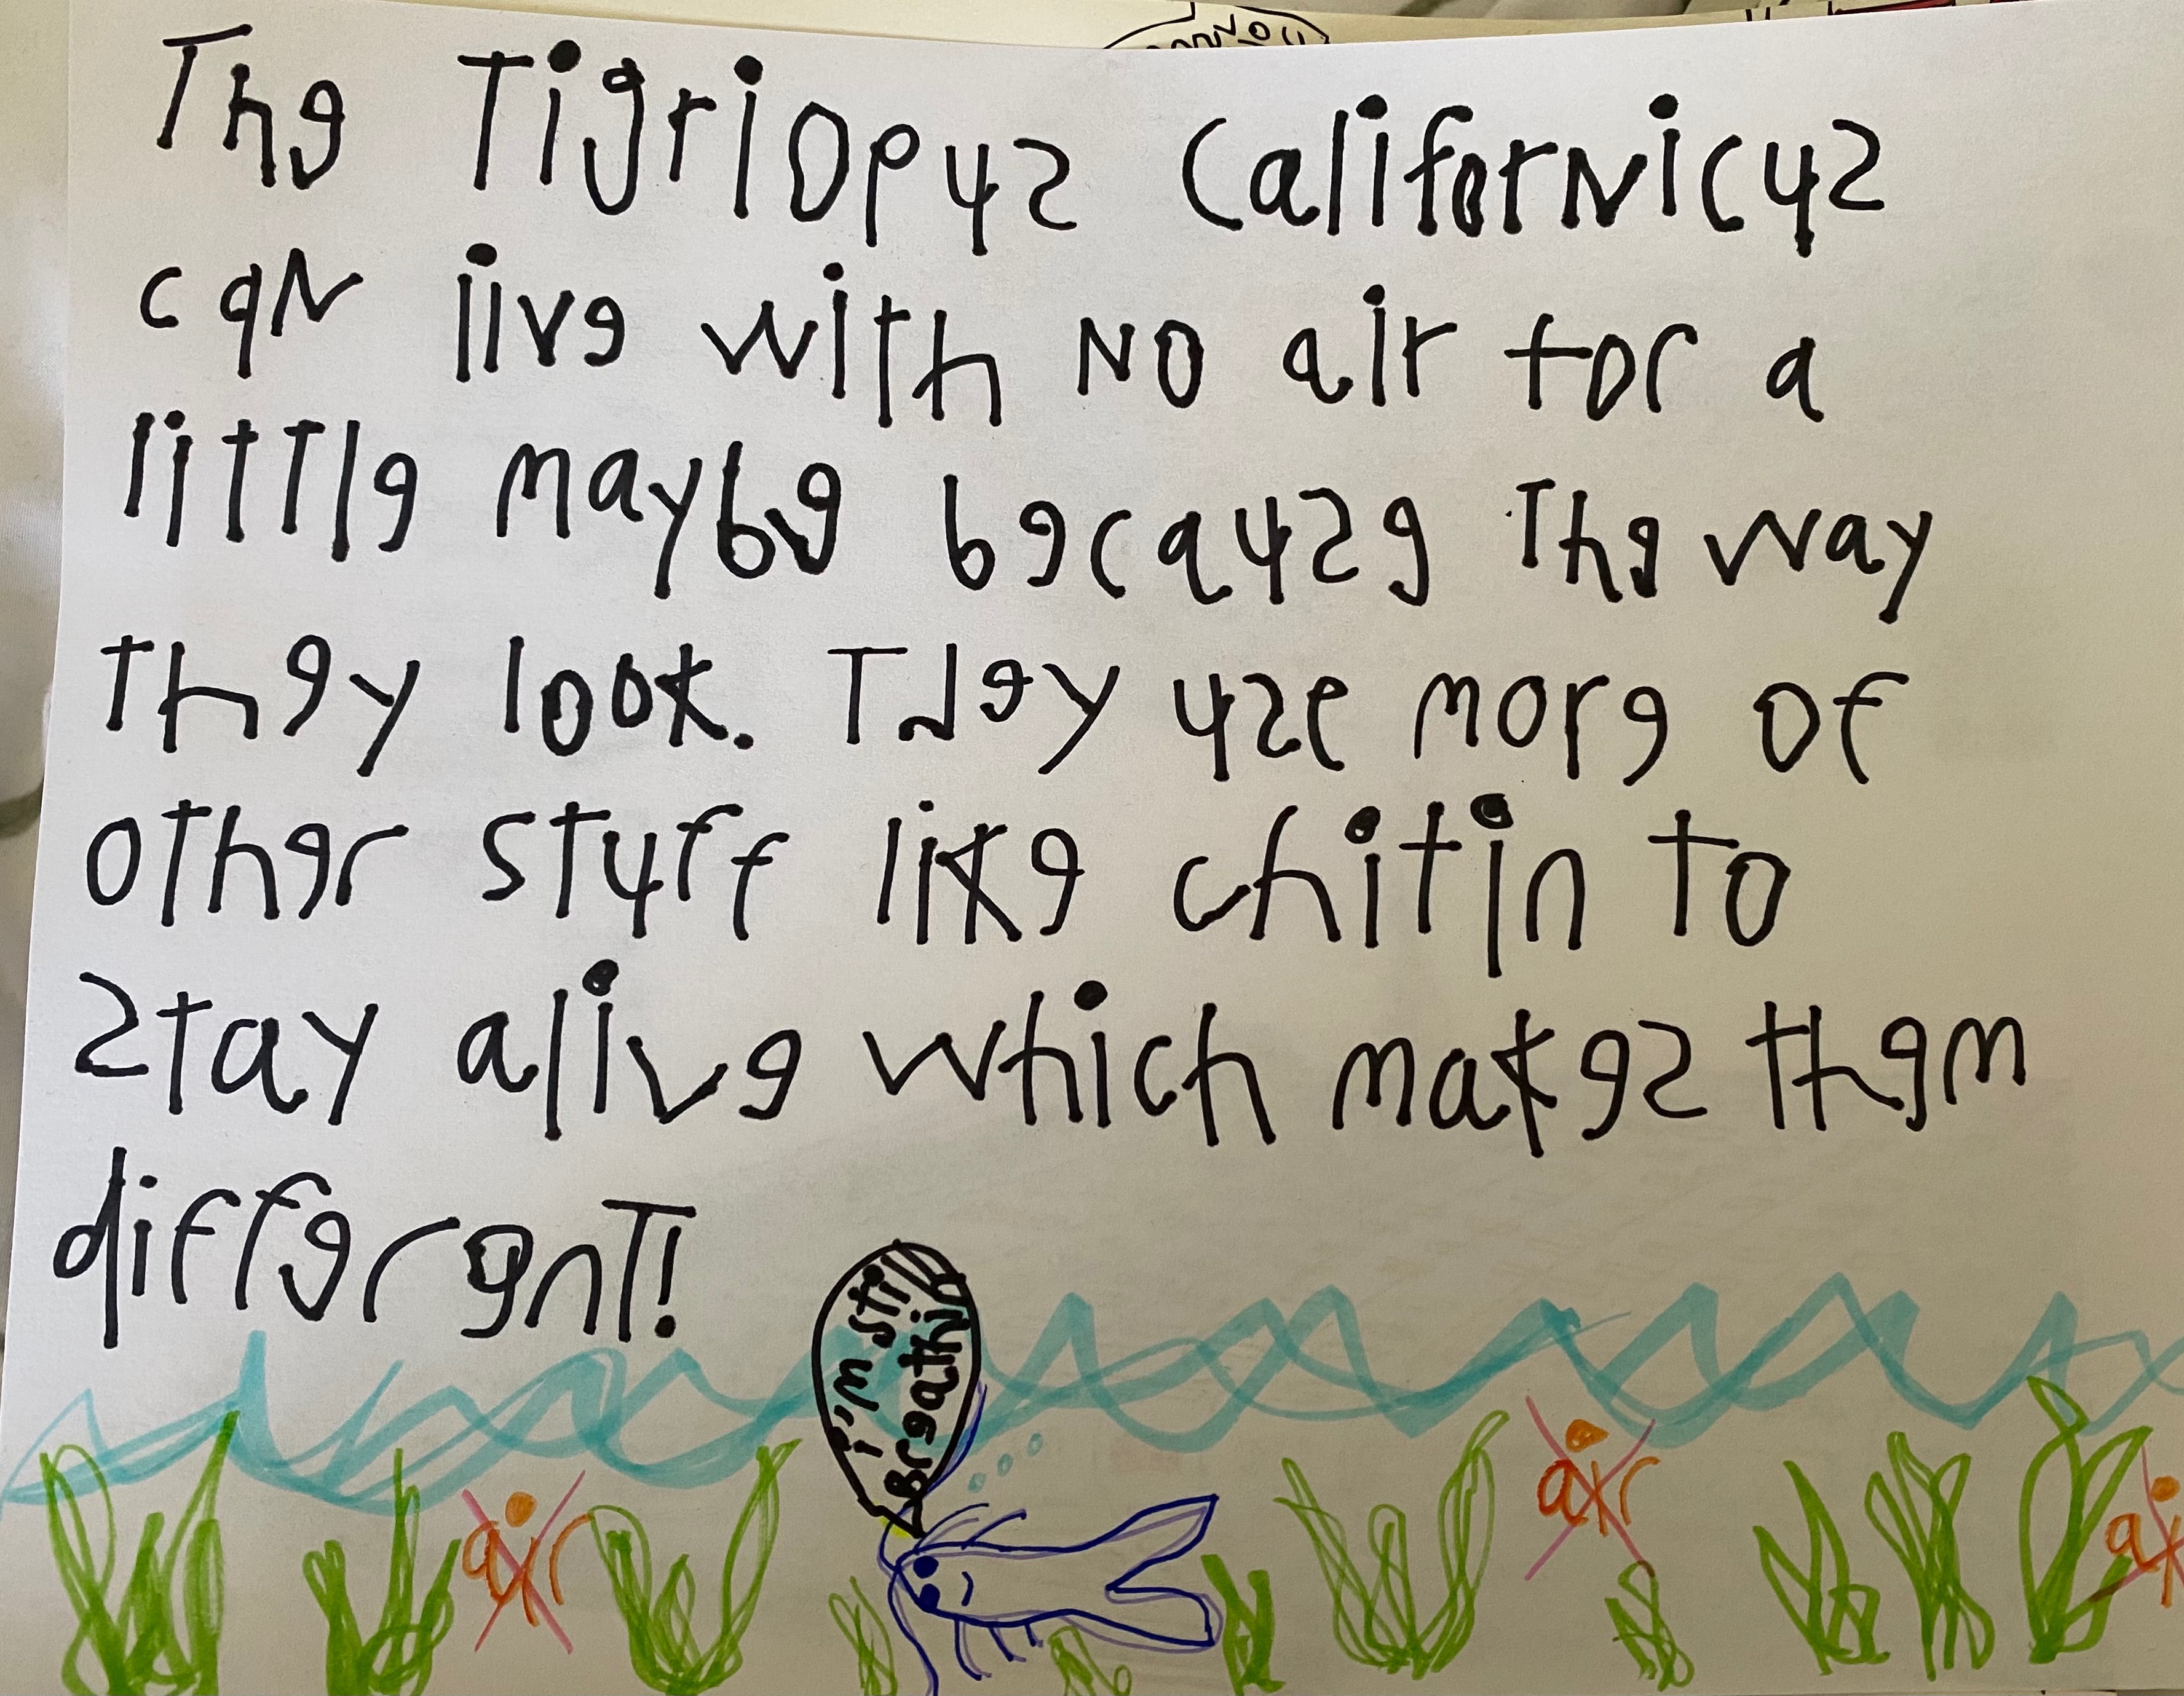 The Tigriopus Californicus
can live with no air for a
little maybe because the way
they look. They use more of
other stuff like chitin to
stay alive which makes them
different!
i'm sti
Breathin
air
air